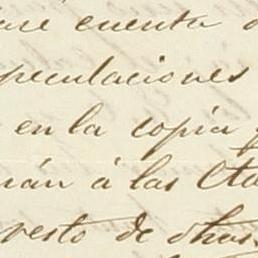 cuenta
peculaciones
en la copia
rán á las Cta
resto de otras